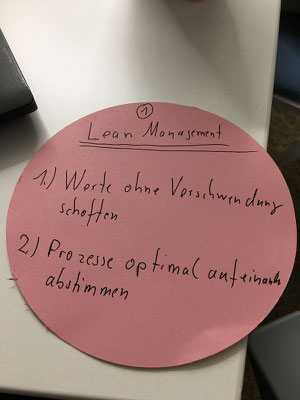 1
Lean Management
1.) Werte ohne Verschwendung
schaffen
2) Prozesse optimal aufeinander
abstimmen